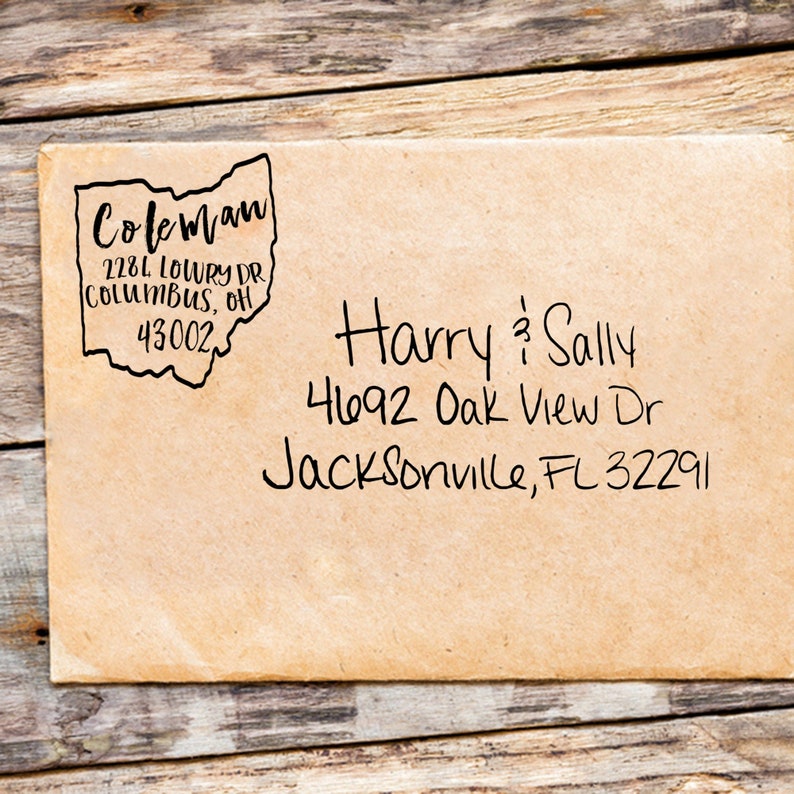 Coleman
2284 LOWRY DR
COLUMBUS, OH
43002
Harry & Sally
4692 Oak View Dr
Jacksonville, FL 32291